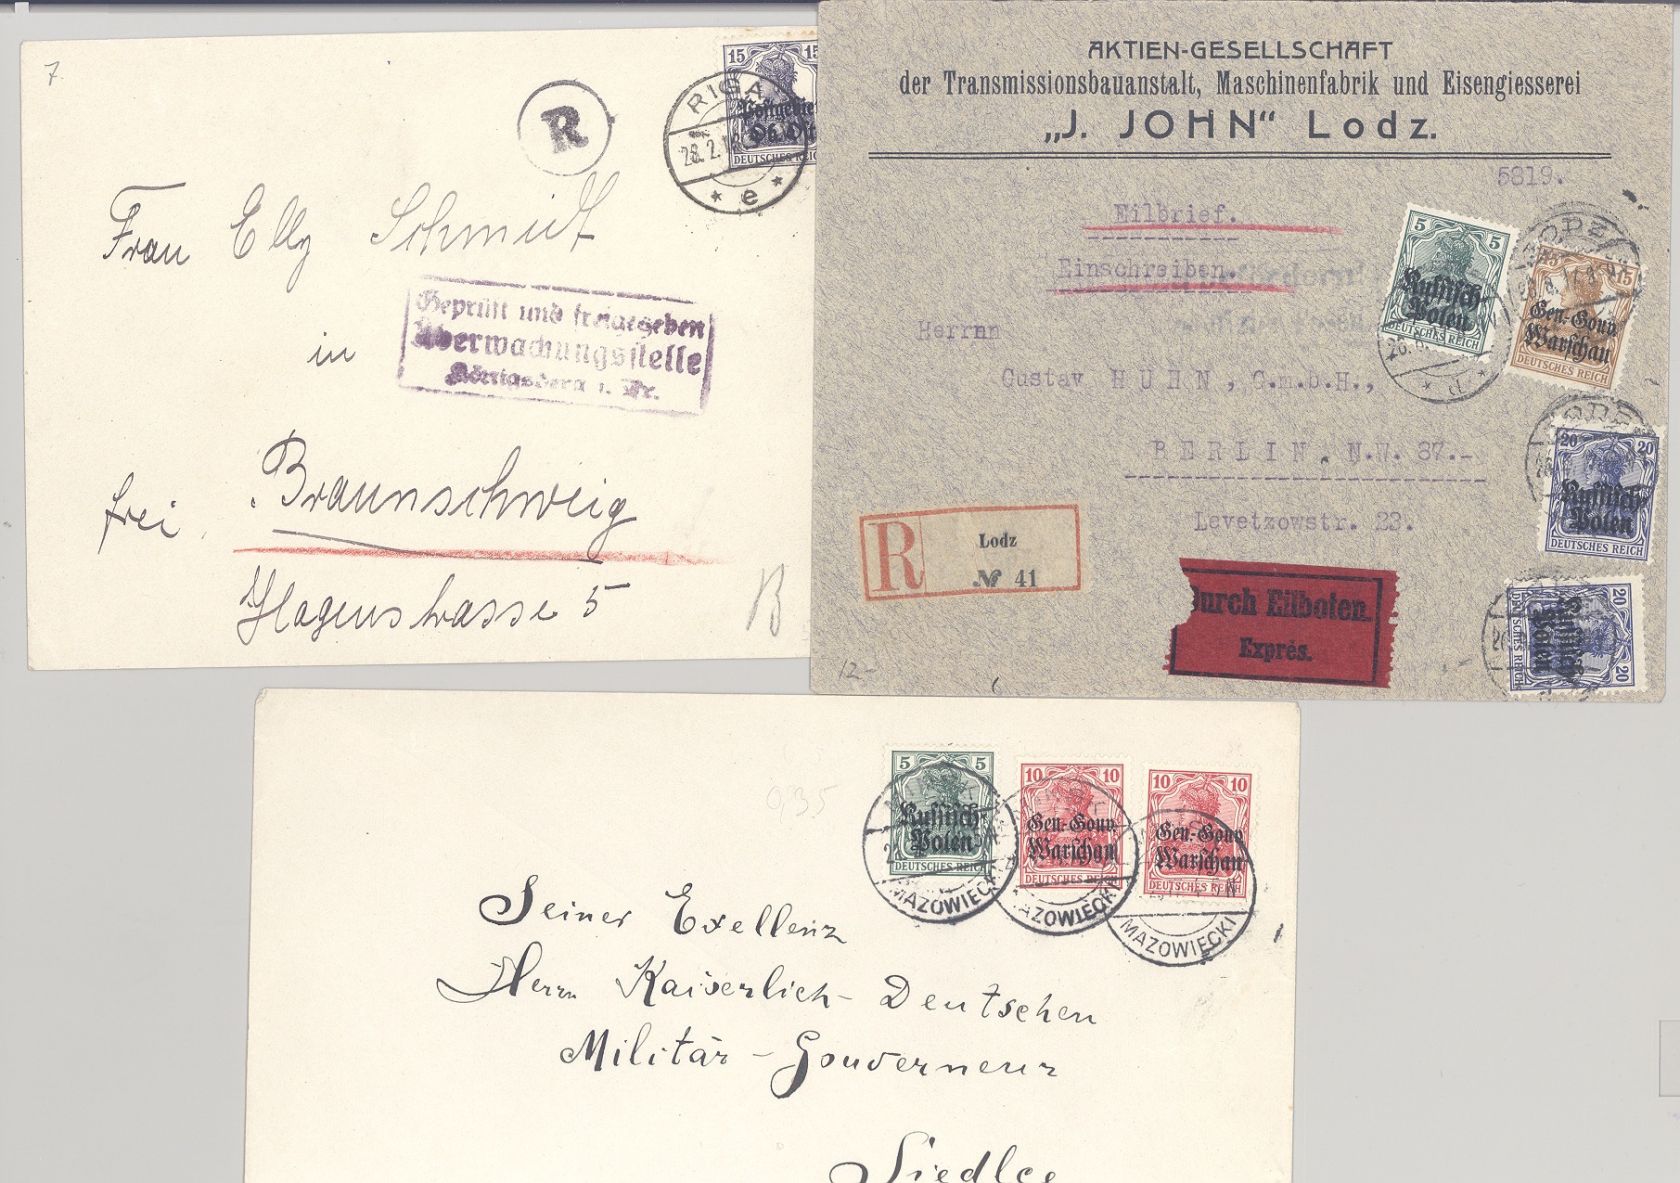 7.
R
15 15
DEUTSCHES
RIGA
28.2.18
* e *
Frau Elly Schmidt
in
Geprüft und freigegeben
Überwachungsstelle
Königsberg i. Pr.
frei
Braunschweig
Hagenstrasse 5
B
AKTIEN-GESELLSCHAFT
der Transmissionsbauanstalt, Maschinenfabrik und Eisengiesserei
„J. JOHN“ Lodz.
5819.
Eilbrief.
Einschreiben.
Herrnn
Gustav HUHN, G.m.b.H.,
BERLIN, N.W. 87.-
Levetzowstr. 23.
R
Lodz
№ 41
Durch Eilboten.
Exprès.
12-
5 5
Russisch-
Polen
DEUTSCHES REICH
15
Gen.-Gouv.
Warschau
DEUTSCHES REICH
20 20
Russisch-
Polen
DEUTSCHES REICH
20 20
Russisch-
Polen
DEUTSCHES REICH
5 5
Russisch-
Polen
DEUTSCHES REICH
MAZOWIECKI
10 10
Gen.-Gouv.
Warschau
DEUTSCHES REICH
MAZOWIECKI
10 10
Gen.-Gouv.
Warschau
DEUTSCHES REICH
MAZOWIECKI
935
Seiner Exellenz
Herrn Kaiserlich-Deutschen
Militär-Gouverneur
Siedlce